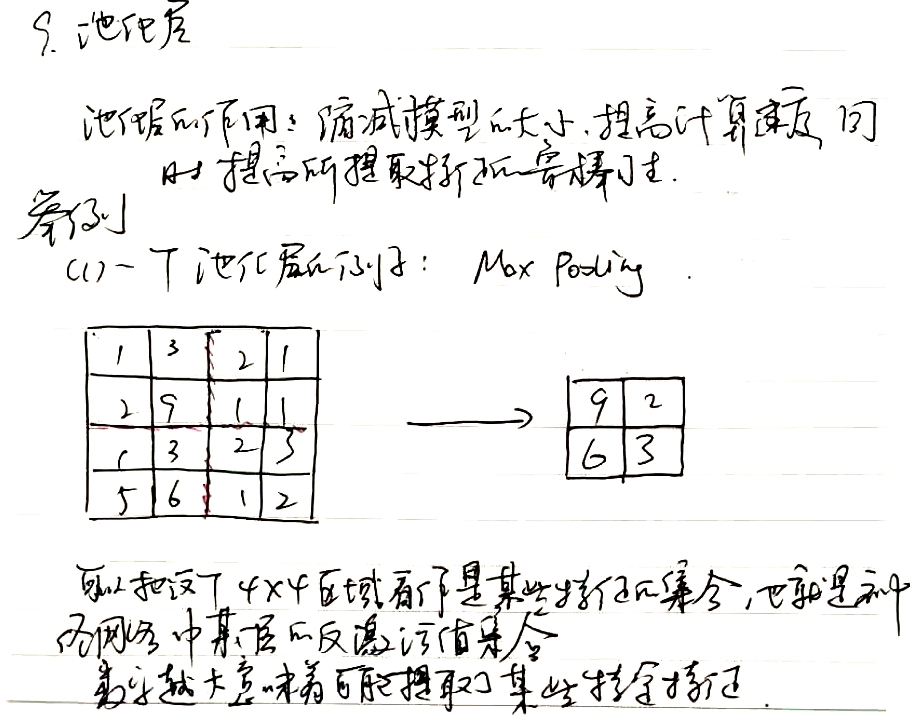 9. 池化层
池化层的作用：缩减模型的大小，提高计算速度 同
时提高所提取特征的鲁棒性.
举例
(1) 一个池化层的例子： Max Pooling .
1 3 2 1
2 9 1 1
1 3 2 3
5 6 1 2
9 2
6 3
可以把这个 4×4 区域看作是某些特征的集合，也就是神
经网络中某层的反激活值集合
数字越大意味着可能提取了某些特定特征.